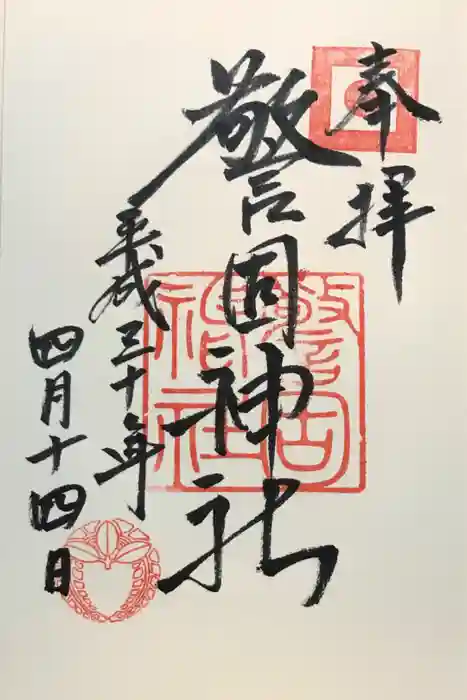 奉拝
警固神社
平成三十年
四月十四日
警固
神社